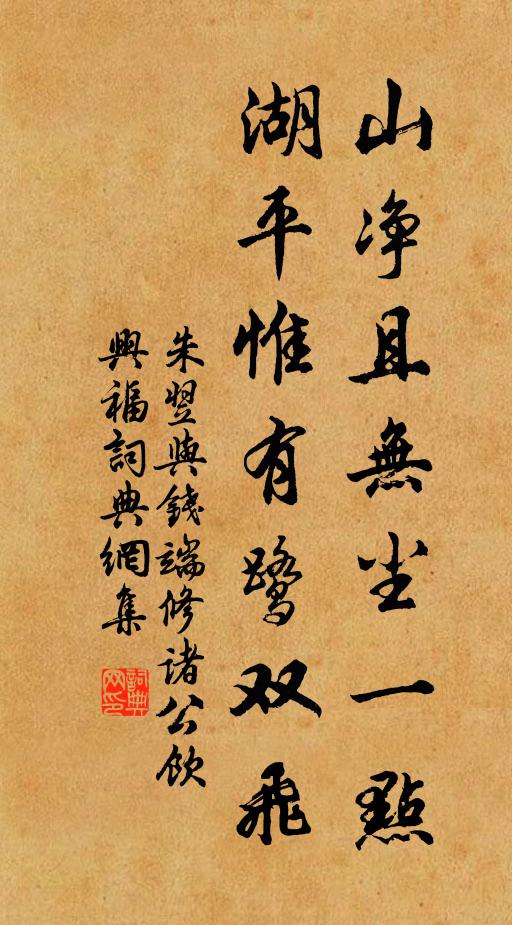 山净且無尘一點
湖平惟有鷺双飛
朱翌與錢端修诸公飲
興福詞典網集
詞典网印